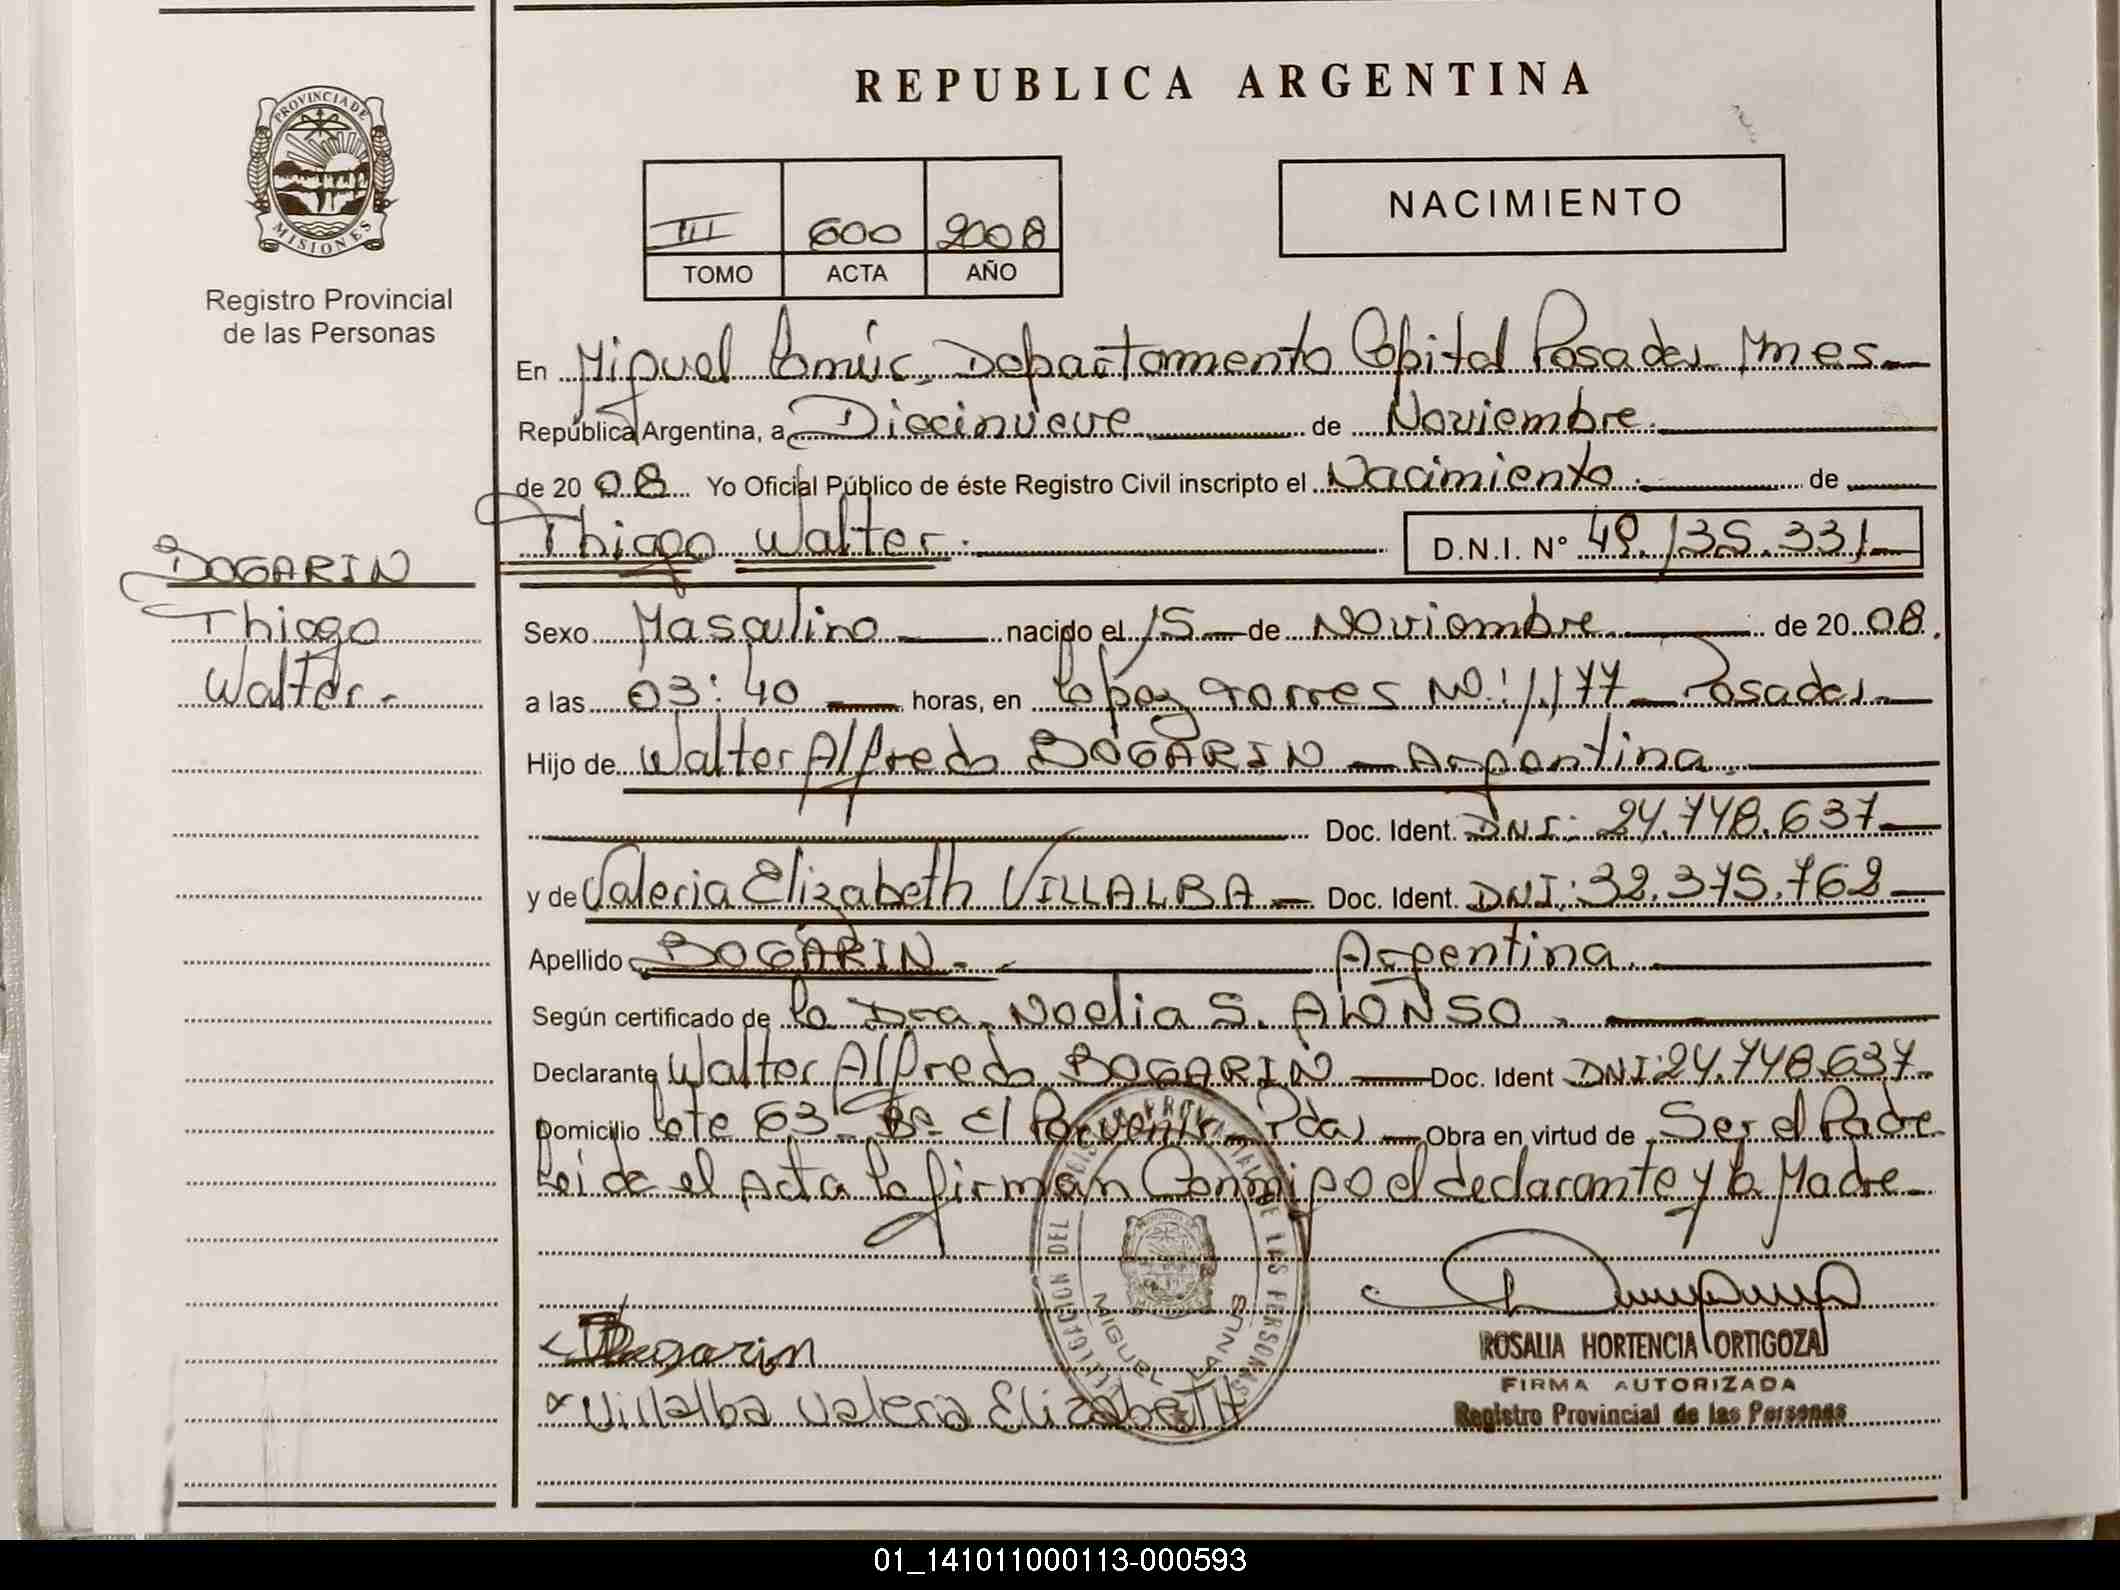 REPUBLICA ARGENTINA
PROVINCIA DE
MISIONES
Registro Provincial
de las Personas
III 600 2008
TOMO ACTA AÑO
NACIMIENTO
En Miguel Lanús, Departamento Capital Posadas Mnes
República Argentina, a Diecinueve de Noviembre.
de 20 08 Yo Oficial Público de éste Registro Civil inscripto el Nacimiento. de
Thiago Walter. D.N.I. Nº 49.135.331
BOGARIN
Thiago
Walter.-
Sexo Masculino nacido el 15 de Noviembre de 20 08.
a las 03:40 horas, en Lopez Torres Nº: 1.177 Posadas
Hijo de Walter Alfredo BOGARIN Argentina.
Doc. Ident. DNI: 24.748.637
y de Valeria Elizabeth VILLALBA Doc. Ident. DNI: 32.375.762
Apellido BOGARIN. Argentina.
Según certificado de la Dra. Noelia S. ALONSO.
Declarante Walter Alfredo BOGARIN Doc. Ident DNI: 24.748.637
Domicilio Lote 63 Bº El Porvenir Pdas Obra en virtud de Ser el Padre
Leida el Acta la firman Conmigo el declarante y la Madre
MIGUEL LANUS
Bogarin
Villalba Valeria ElizabeTH
ROSALIA HORTENCIA ORTIGOZA
FIRMA AUTORIZADA
Registro Provincial de las Personas
01_141011000113-000593